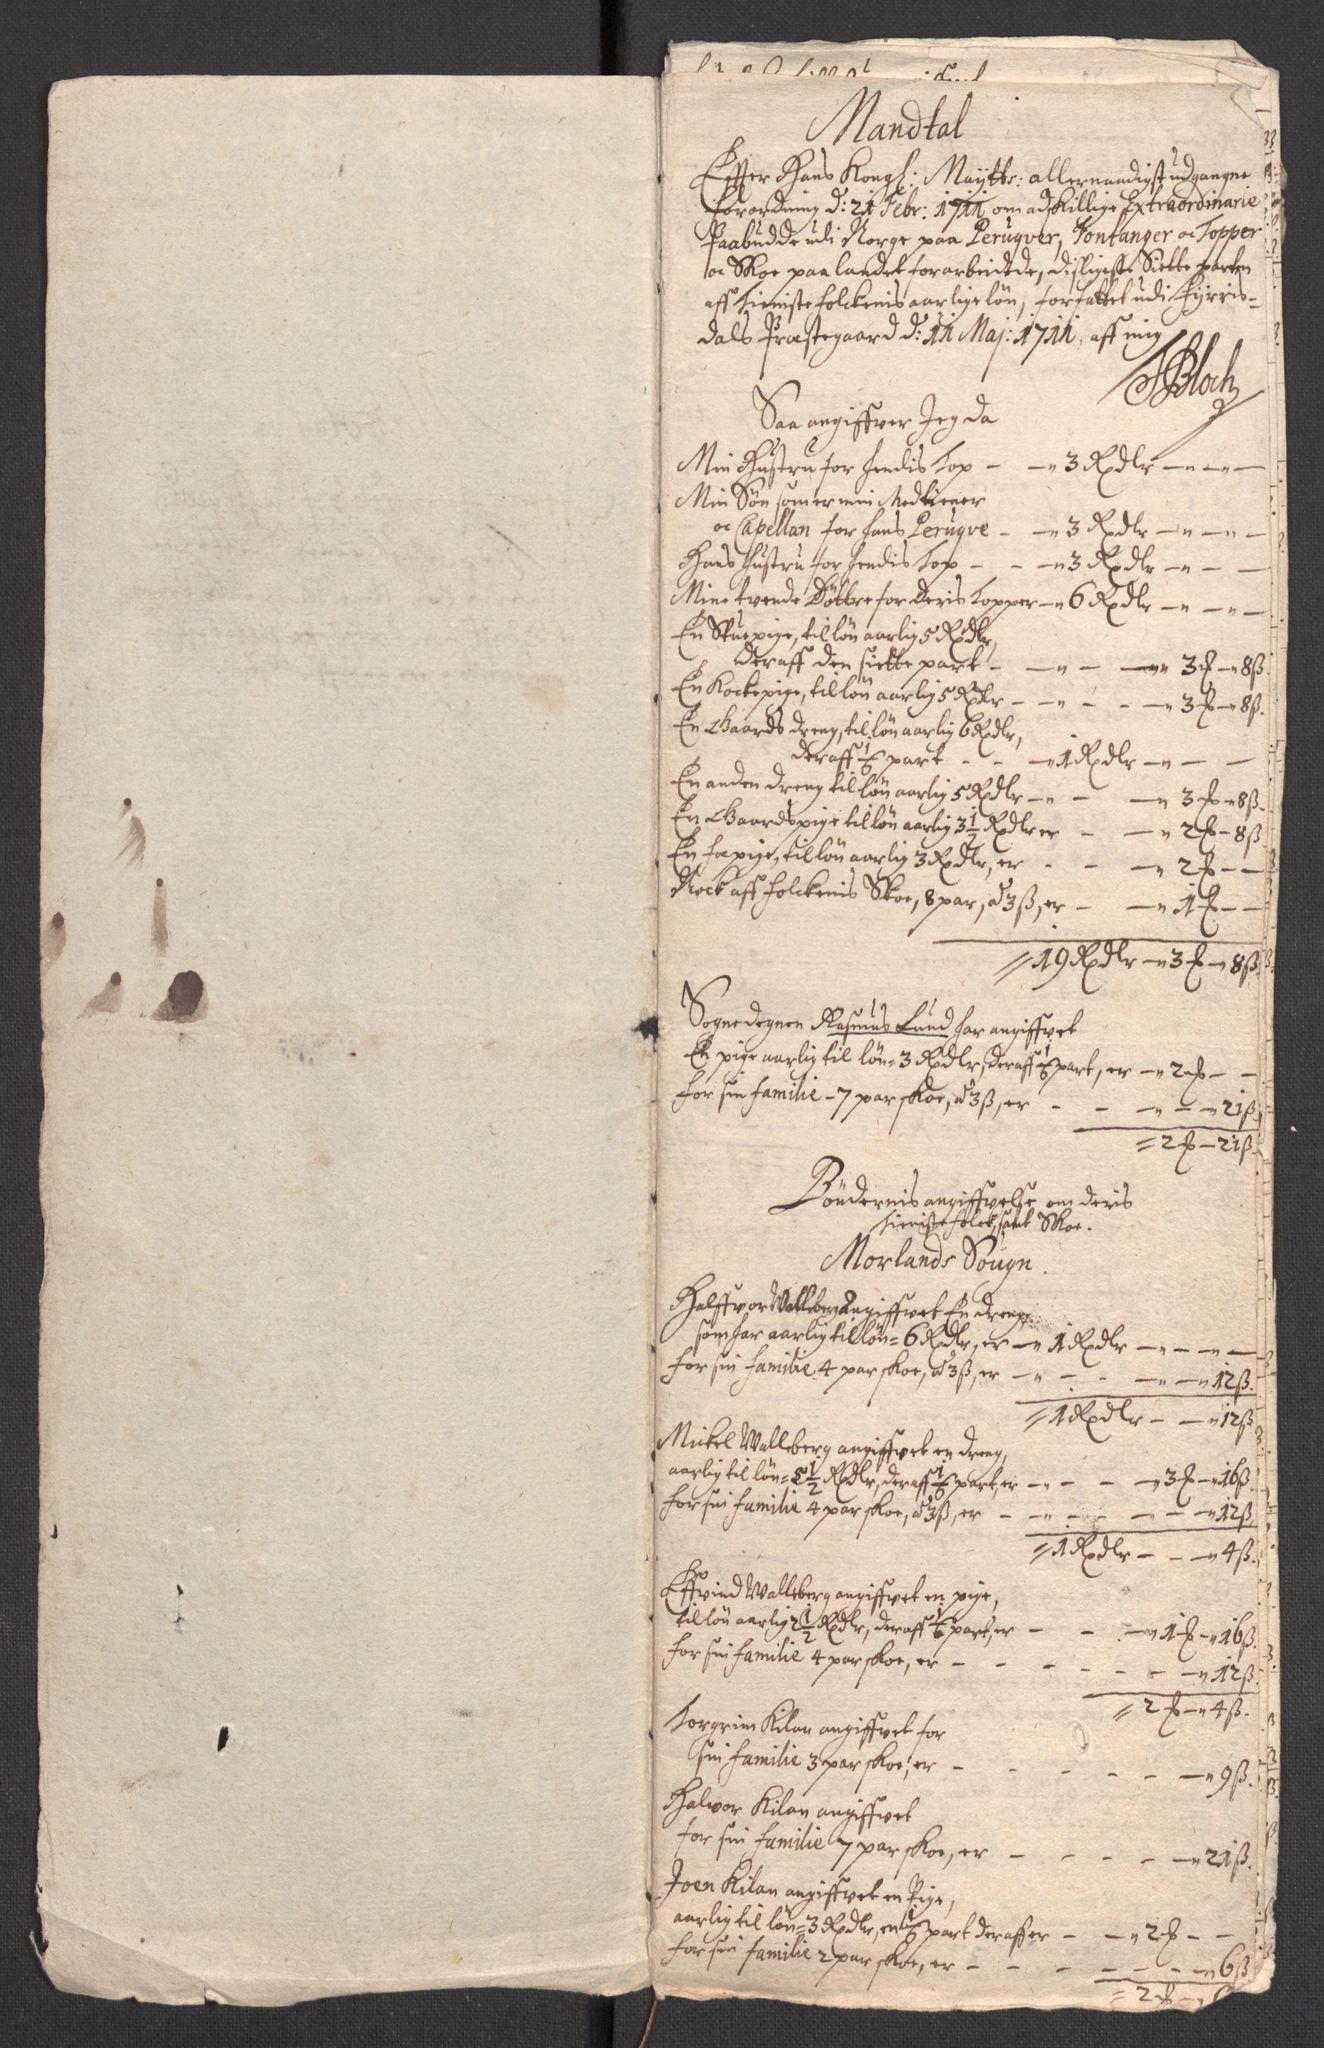 Mandtal
Effter Hans Kongl: Maÿtts: allernaadigst udgangne
forordning d: 21 Febr: 1711 om adskillige Extraordinarie
Paabudde udi Norge paa Peruqver, Fontanger oc Topper
oc Skoe paa landet forarbeidede, disligeste Siette parten
aff tieniste folckenis aarlige løn, forfattet udi Fyrris-
dals Præstegaard d: 11 Maj: 1711, aff mig
SBloch
Saa angiffver Jeg da
Min Hustru for hendis Top - - 3 Rxdlr - - -
Min Søn som er min Medtiener
oc Capellan for hans Peruqve - - 3 Rxdlr - - -
Hans hustru for hendis Top - - - 3 Rxdlr - - -
Mine tvende Døttre for Deris Topper - 6 Rxdlr - - -
En Stuepige, til løn aarlig 5 Rxdlr,
deraff den siette part - - - - 3 ƶ - 8 ß.
En Kockepige, til løn aarlig 5 Rxdlr - - - - 3 ƶ - 8 ß.
En Gaards dreng, til løn aarlig 6 Rxdlr,
deraff 1/6 part - - - 1 Rxdlr - - -
En anden dreng til løn aarlig 5 Rxdlr - - - 3 ƶ - 8 ß.
En Gaardspige til løn aarlig 3 1/2 Rxdlr er - - 2 ƶ - 8 ß
En fæpige, til løn aarlig 3 Rxdlr, er - - - 2 ƶ - -
Nock aff folckenis Skoe, 8 par, a 3 ß, er - - 1 ƶ - -
= 19 Rxdlr - 3 ƶ - 8 ß.
Sognedegnen Rasmus Lund har angiffvet
En pige aarlig til løn = 3 Rxdlr, deraff 1/6 part, er - 2 ƶ - -
for sin familie - 7 par skoe, a 3 ß, er - - - - 21 ß.
= 2 ƶ - 21 ß.
Bøndernis angiffvelse om deris
tieniste folck, samt Skoe.
Morlands Sougn.
Halffvor Walleberg angiffvet En dreng,
som har aarlig til løn = 6 Rxdlr, er - 1 Rxdlr - - - -
for sin familie 4 par skoe, a 3 ß, er - - - - - 12 ß.
= 1 Rxdlr - - 12 ß
Mickel Walleberg angiffvet en dreng,
aarlig til løn = 5 1/2 Rxdlr, deraff 1/6 part, er - - - 3 ƶ - 16 ß.
for sin familie 4 par skoe, a 3 ß, er - - - - - - 12 ß.
= 1 Rxdlr - - - 4 ß.
Effvind Walleberg angiffvet en pige,
til løn aarlig 2 1/2 Rxdlr, deraff 1/6 part, er - - - 1 ƶ - 16 ß.
for sin familie 4 par skoe, er - - - - - - - 12 ß.
= 2 ƶ - 4 ß.
Torgrim Kilan angiffvet for
sin familie 3 par skoe, er - - - - - - 9 ß.
Halvor Kilan angiffvet
for sin familie 7 par skoe, er - - - - - 21 ß.
Joen Kilan angiffvet en Pige,
aarlig til løn = 3 Rxdlr, en 1/6 part deraff er - - 2 ƶ - -
for sin familie 2 par skoe, er - - - - - - - 6 ß
= 2 ƶ - 6